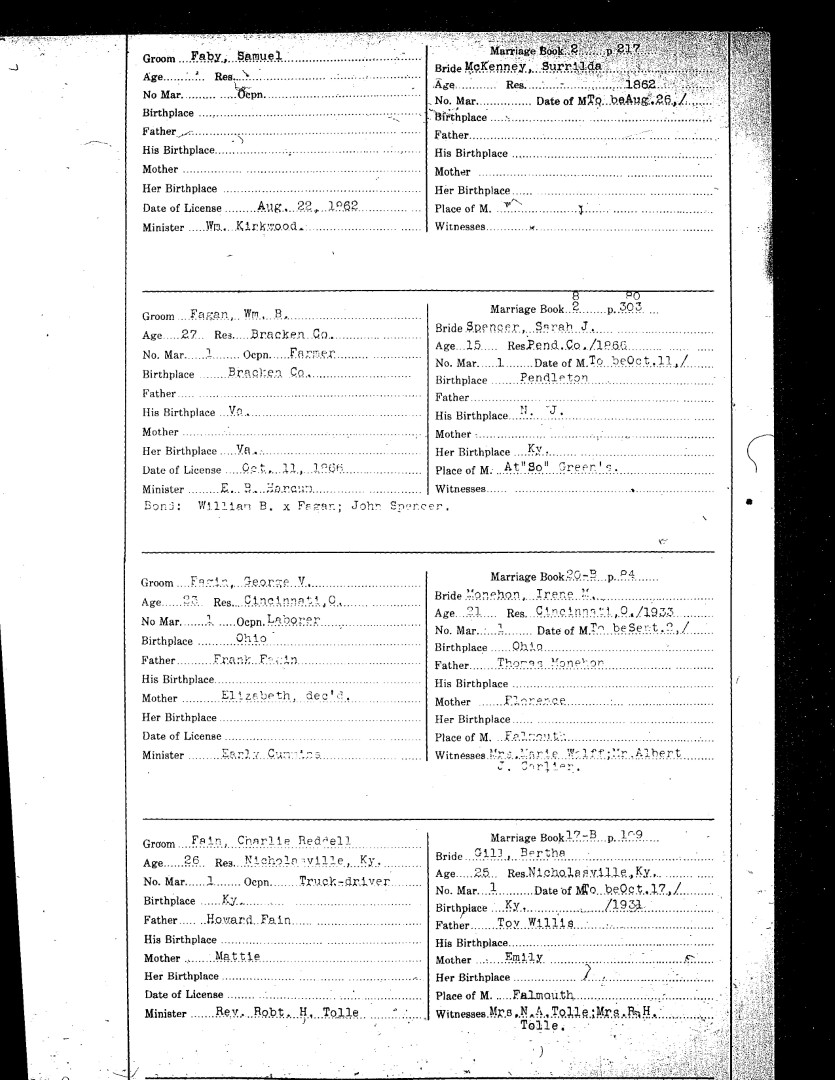 Groom Faby, Samuel
Age Res.
No Mar. Ocpn.
Birthplace
Father
His Birthplace
Mother
Her Birthplace
Date of License Aug. 22, 1862
Minister Wm. Kirkwood.
Marriage Book 2 p. 217
Bride McKenney, Surrilda
Age Res. 1862
No. Mar. Date of M. To be Aug. 26, /
Birthplace
Father
His Birthplace
Mother
Her Birthplace
Place of M.
Witnesses
Groom Fagan, Wm. B.
Age 27 Res. Bracken Co.
No. Mar. 1 Ocpn. Farmer
Birthplace Bracken Co.
Father
His Birthplace Va.
Mother
Her Birthplace Va.
Date of License Oct. 11, 1866
Minister E. B.
8 80
Marriage Book 2 p. 303
Bride Spencer, Sarah J.
Age 15 Res. Pend. Co. /1866
No. Mar. 1 Date of M. To be Oct. 11, /
Birthplace Pendleton
Father
His Birthplace N. J.
Mother
Her Birthplace Ky.
Place of M. At "So" Green's.
Witnesses
Bond: William B. x Fagan; John Spencer.
Groom Fagin, George V.
Age 23 Res. Cincinnati, O.
No Mar. 1 Ocpn. Laborer
Birthplace Ohio
Father Frank Fagin
His Birthplace
Mother Elizabeth, dec'd.
Her Birthplace
Date of License
Minister Early Cummins
Marriage Book 20-B p. 84
Bride Monehon, Irene M.
Age 21 Res. Cincinnati, O. /1933
No. Mar. 1 Date of M. To be Sept. 2, /
Birthplace Ohio
Father Thomas Monehon
His Birthplace
Mother Florence
Her Birthplace
Place of M. Falmouth
Witnesses Mrs. Marie Wolff; Mr. Albert
J. Carlier.
Groom Fain, Charlie Reddell
Age 26 Res. Nicholasville, Ky.
No. Mar. 1 Ocpn. Truck-driver
Birthplace Ky.
Father Howard Fain
His Birthplace
Mother Mattie
Her Birthplace
Date of License
Minister Rev. Robt. H. Tolle
Marriage Book 17-B p. 189
Bride Gill, Bertha
Age 25 Res. Nicholasville, Ky.
No. Mar. 1 Date of M. To be Oct. 17, /
Birthplace Ky. /1931
Father Toy Willis
His Birthplace
Mother Emily
Her Birthplace
Place of M. Falmouth
Witnesses Mrs. N. A. Tolle; Mrs. R. H.
Tolle.